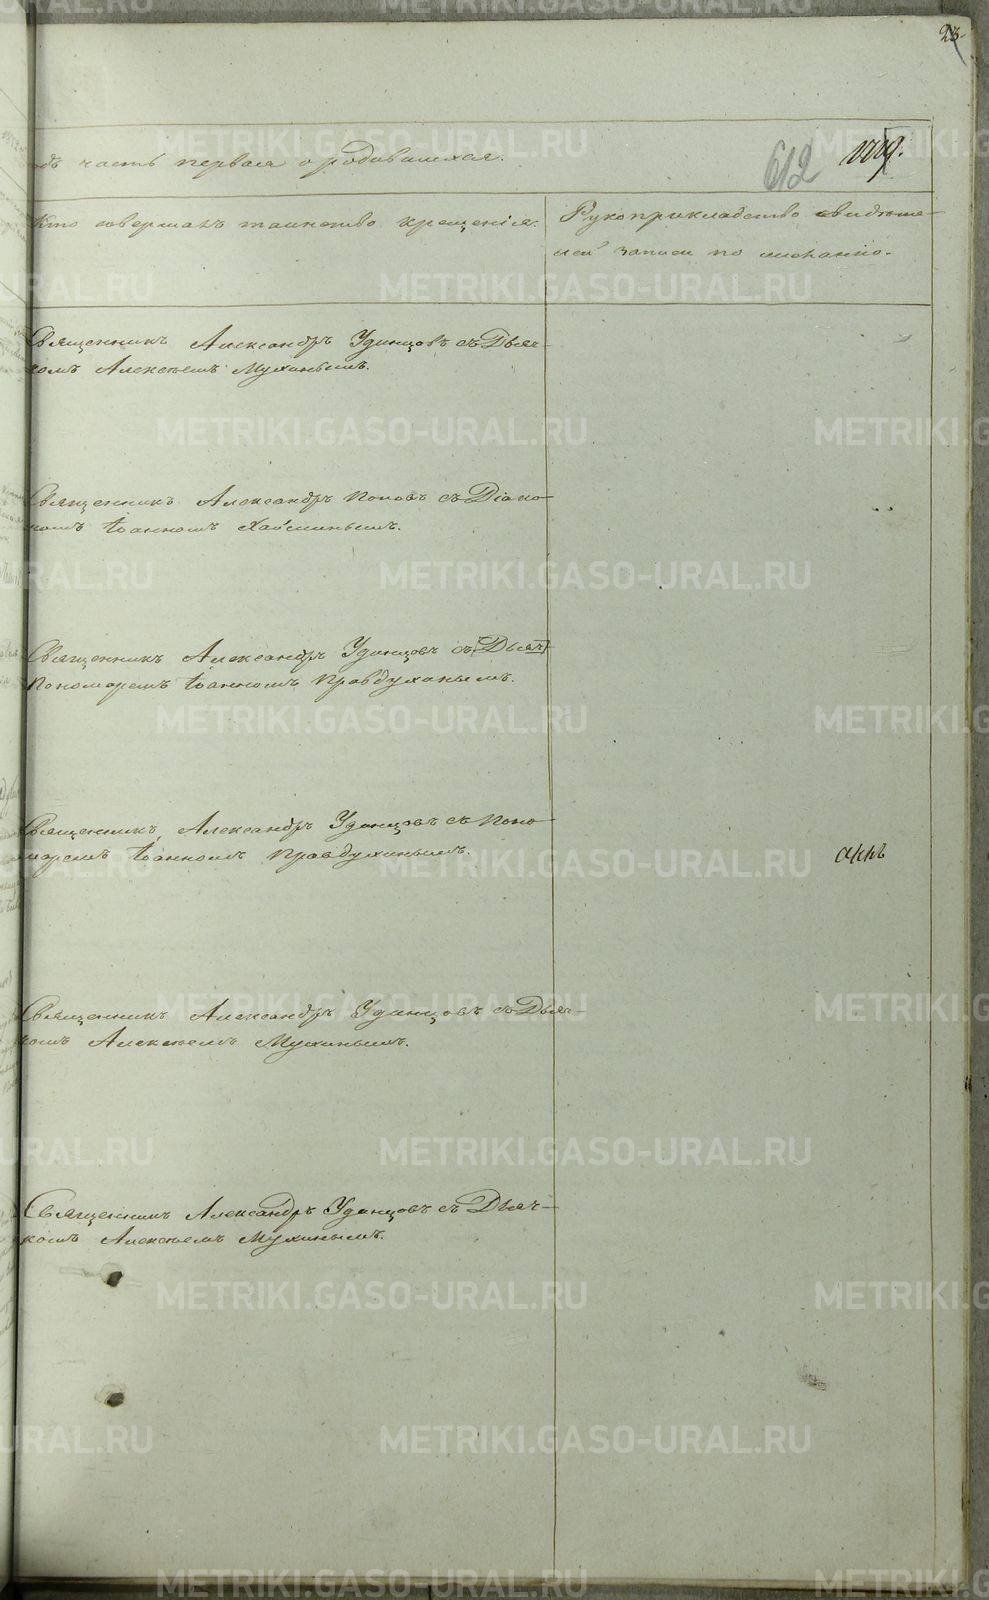 23.
одъ часть первая о родившихся.
612
Кто совершалъ таинство крещенія.
Рукоприкладство свидѣте-
лей записи по желанію.
Священникъ Александръ Удинцовъ съ Дьяч-
комъ Алексѣемъ Мухинымъ.
Священникъ Александръ Поповъ съ Діако-
номъ Іоанномъ
Священникъ Александръ Удинцовъ съ [Дьяч]
Пономаремъ Іоанномъ Правдухинымъ.
Священникъ Александръ Удинцовъ съ Поно-
маремъ Іоанномъ Правдухинымъ.
Священникъ Александръ Удинцовъ съ Дьяч-
комъ Алексѣемъ Мухинымъ.
Священникъ Александръ Удинцовъ съ Дьяч-
комъ Алексѣемъ Мухинымъ.
METRIKI.GASO-URAL.RU